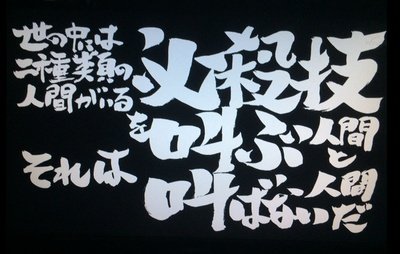 世の中には
二種類の
人間がいる
それは
必殺技
を叫ぶ人間と
叫ばない人間だ